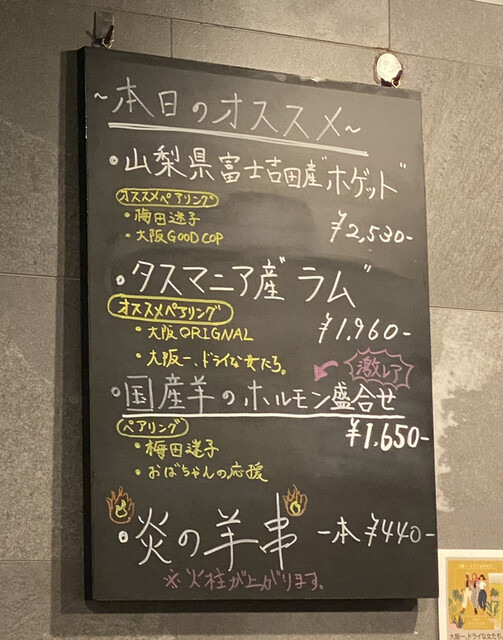 ~本日のオススメ~
・山梨県富士吉田産"ホゲット"
オススメペアリング
・梅田迷子
・大阪GOOD COP
¥2,530-
・タスマニア産"ラム"
オススメペアリング
¥1,960-
・大阪ORIGNAL
・大阪一、ドライな女たち。
激レア
・国産羊のホルモン盛合せ
¥1,650-
ペアリング
・梅田迷子
・おばちゃんの応援
・炎の羊串 一本 ¥440-
※火柱が上がります。
大阪一、ドライな女たち